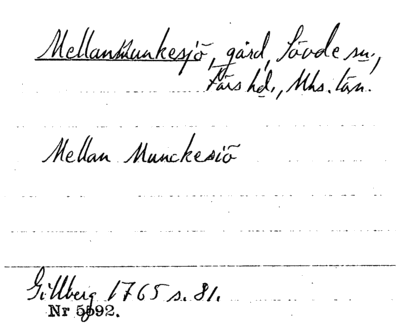 MellanMunkesjö, gård, Sövde sn.,
Färs hd., Mhs. län.
Mellan Munckesiö
Gillberg 1765 s. 81.
Nr 5592.